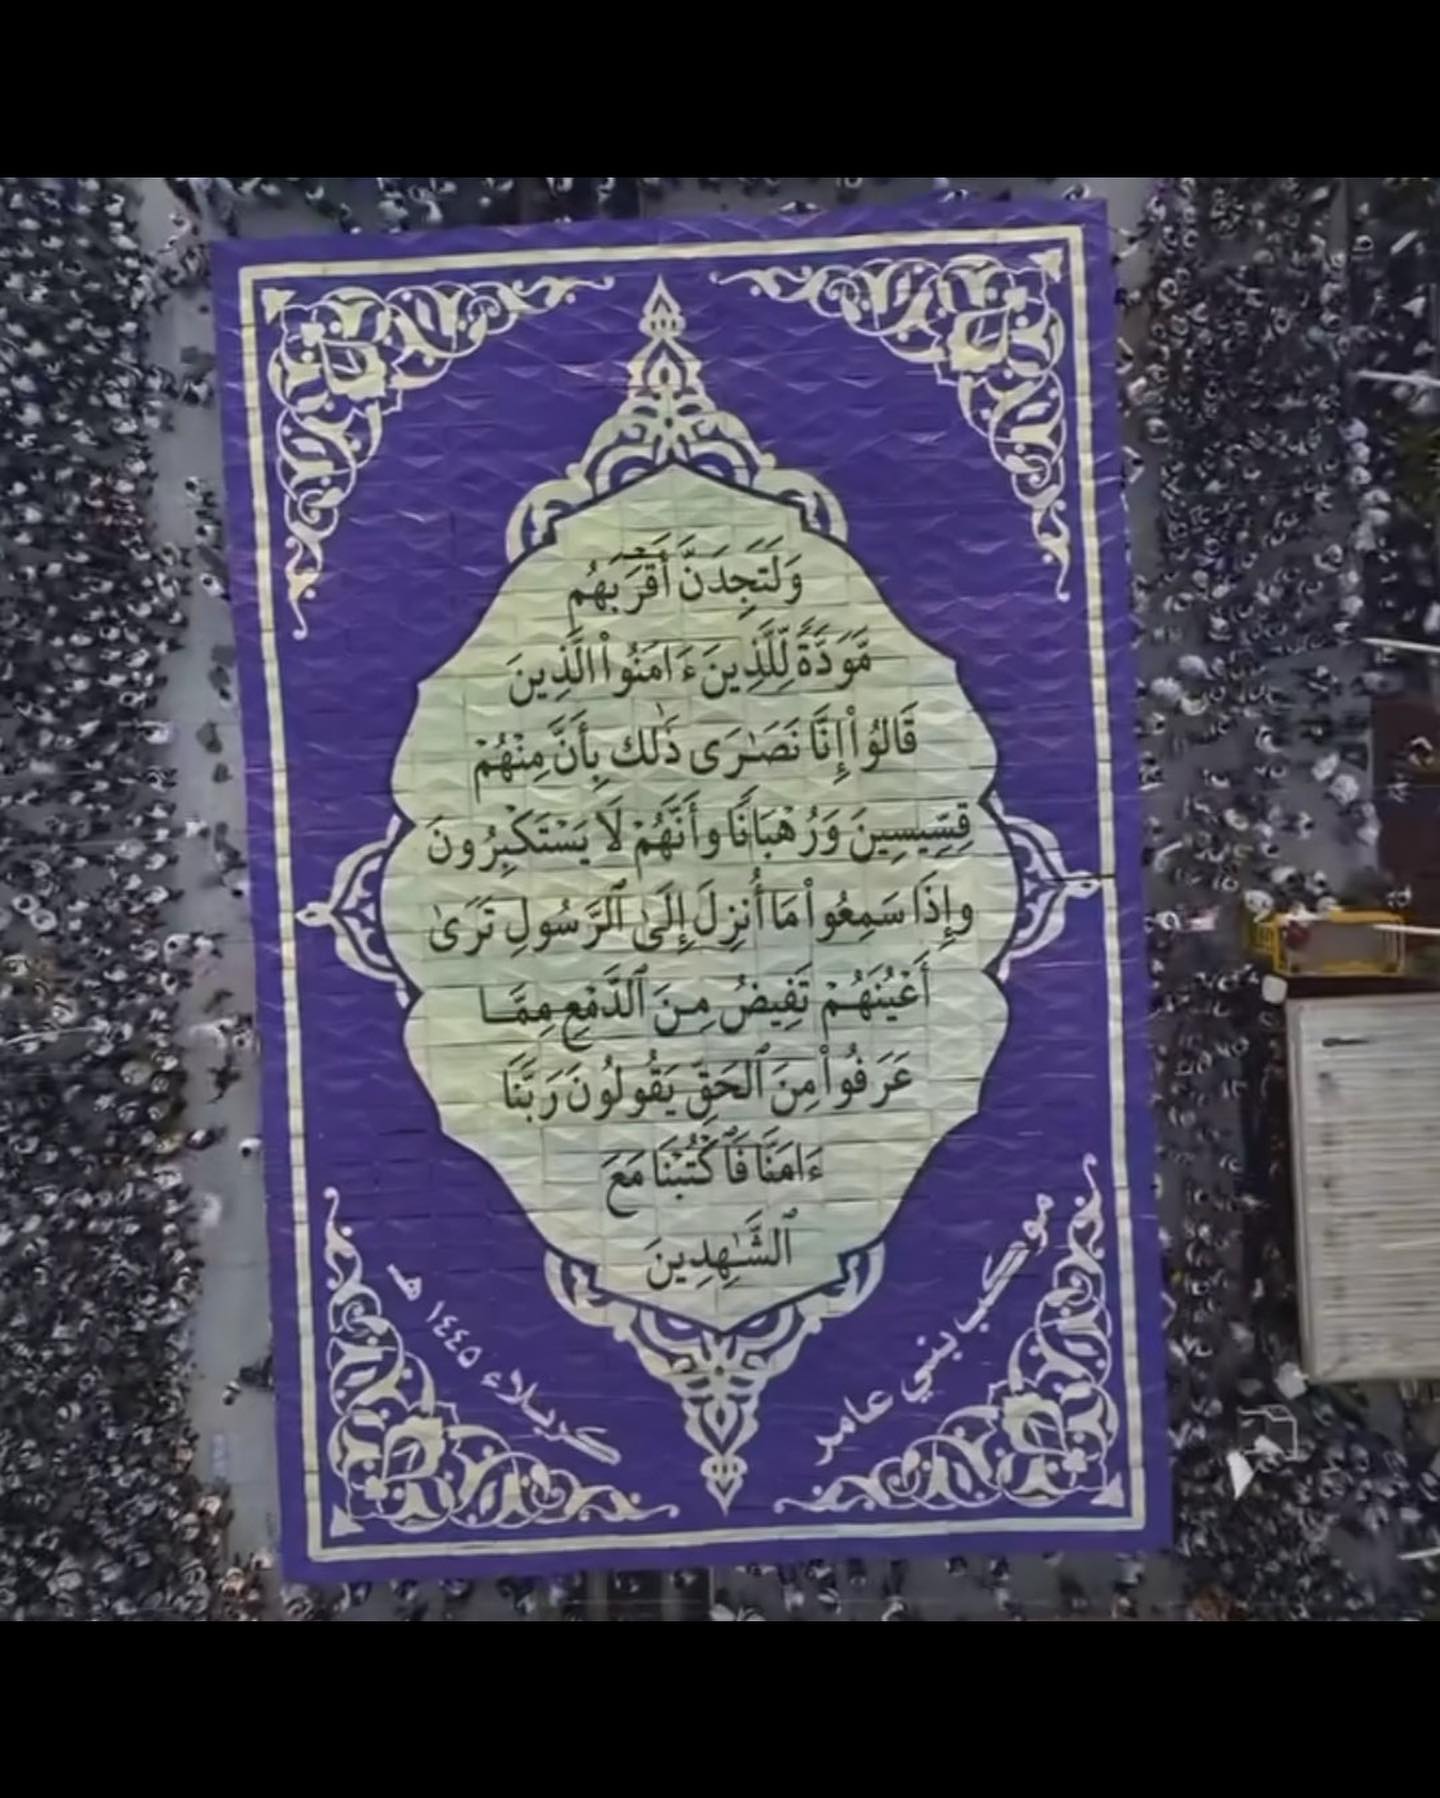 وَلَتَجِدَنَّ أَقْرَبَهُم
مَّوَدَّةً لِّلَّذِينَ ءَامَنُوا۟ الَّذِينَ
قَالُوٓا۟ إِنَّا نَصَـٰرَى ذَٰلِك بِأَنَّ مِنْهُمْ
قِسِّيسِينَ وَرُهْبَانًا وأَنَّهُمْ لَا يَسْتَكْبِرُونَ
وإِذَا سَمِعُوا۟ مَا أُنزِلَ إِلَى ٱلرَّسُولِ تَرَىٰ
أَعْيُنَهُمْ تَفِيضُ مِنَ ٱلدَّمْعِ مِمَّا
عَرَفُوا۟ مِنَ ٱلحَقِّ يَقُولُونَ رَبَّنَا
ءَامَنَّا فَٱكْتُبْنَا مَعَ
ٱلشَّـٰهِدِينَ
موكب بني عامر
كربلاء ١٤٤٥ هـ